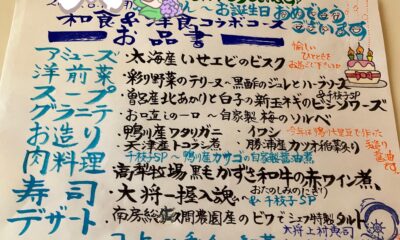 お誕生日おめでとうございます
和食&洋食コラボコース
お品書
愉しいひとときをお過ごし下さい
アミューズ 太海産いせエビのビスク
洋前菜 彩り野菜のテリーヌ〜黒酢のジュレとハーブ
スープ 曽呂産北あかりと白子の新玉ネギのビシソワーズ
グラニテ お口直しの一口〜自家製梅のソルベ
お造り 鴨川産ワタリガニ イワシ
天津産トコブシ煮 勝浦産カツオ稲藁炙り
千枝子SP〜鴨川産カサゴの自家製醤油煮
肉料理 高梨牧場黒毛かずさ和牛の赤ワイン煮
寿司 大将一握入魂〜おたのしみのにぎり &千枝子SP
デザート 南房総 間農園産のビワ シェフ特製タルト